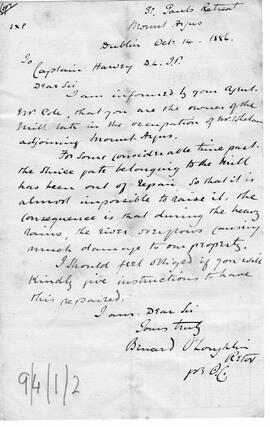 St. Pauls Retreat
Mount Argus
Dublin Oct. 14. 1886.
J X P
To
Captain Harvey D.L. J.P.
Dear Sir
I am informed by your Agent
Mr Cole, that you are the owner of the
Mill late in the occupation of Mr Whelan
adjoining Mount Argus.
For some considerable time past
the sluice gate belonging to the Mill
has been out of repair, so that it is
almost impossible to raise it, the
consequence is that during the heavy
rains, the river overflows causing
much damage to our property.
I should feel obliged if you will
Kindly give instructions to have
this repaired.
I am Dear Sir
Yours truly
Bernard O'Loughlin
Rector
9/4/1/2